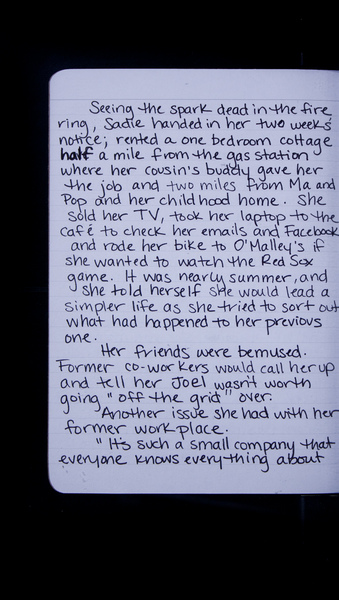 Seeing the spark dead in the fire
ring, Sadie handed in her two weeks'
notice; rented a one bedroom cottage
half a mile from the gas station
where her cousin's buddy gave her
the job and two miles from Ma and
Pop and her childhood home. She
sold her TV, took her laptop to the
café to check her emails and Facebook
and rode her bike to O'Malley's if
she wanted to watch the Red Sox
game. It was nearly summer, and
she told herself she would lead a
simpler life as she tried to sort out
what had happened to her previous
one.
Her friends were bemused.
Former co-workers would call her up
and tell her Joel wasn't worth
going "off the grid" over.
Another issue she had with her
former workplace.
"It's such a small company that
everyone knows everything about